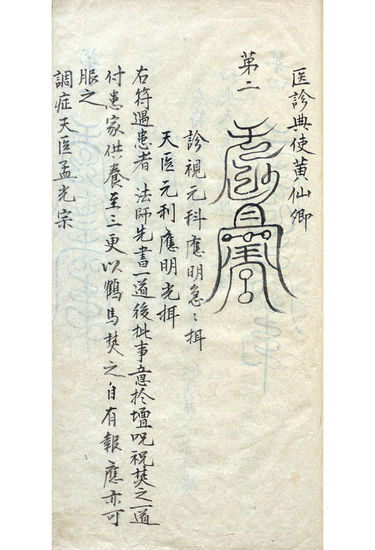 医診典使黄仙卿
第二
診視元科應明急々揖
天医元利應明光揖
右符遇患者法師先書一道後批事意於壇呪祝焚之一道
付患家供養至三更以鶴馬焚之自有報應亦可
服之
調症天医孟光宗